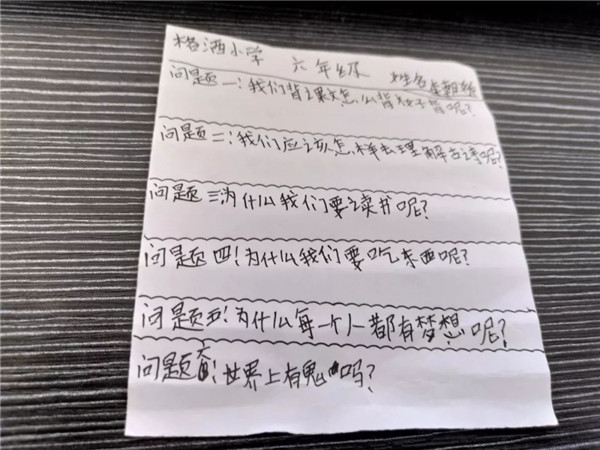 格洒小学 六年级 姓名
问题一:我们背课文怎么背 呢?
问题二:我们应该怎样去理解古诗呢?
问题三:为什么我们要读书呢?
问题四!为什么我们要吃东西呢?
问题五!为什么每一个人都有梦想呢?
问题六!世界上有鬼吗?